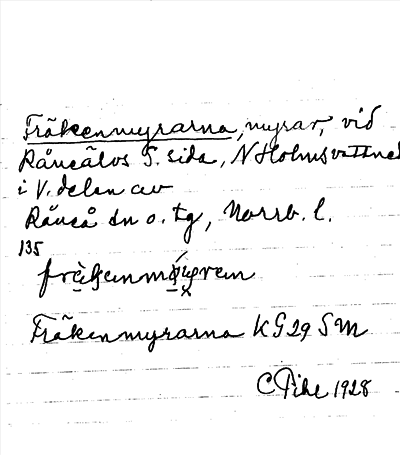 Fräkenmyrarna, myrar, vid
Råneälvs S. sida, N Holmsvattnet
i V. delen av
Råneå sn o. tg, Norrb. l.
135
Fräkenmyrarna KG 29 SM
C Pihl 1928